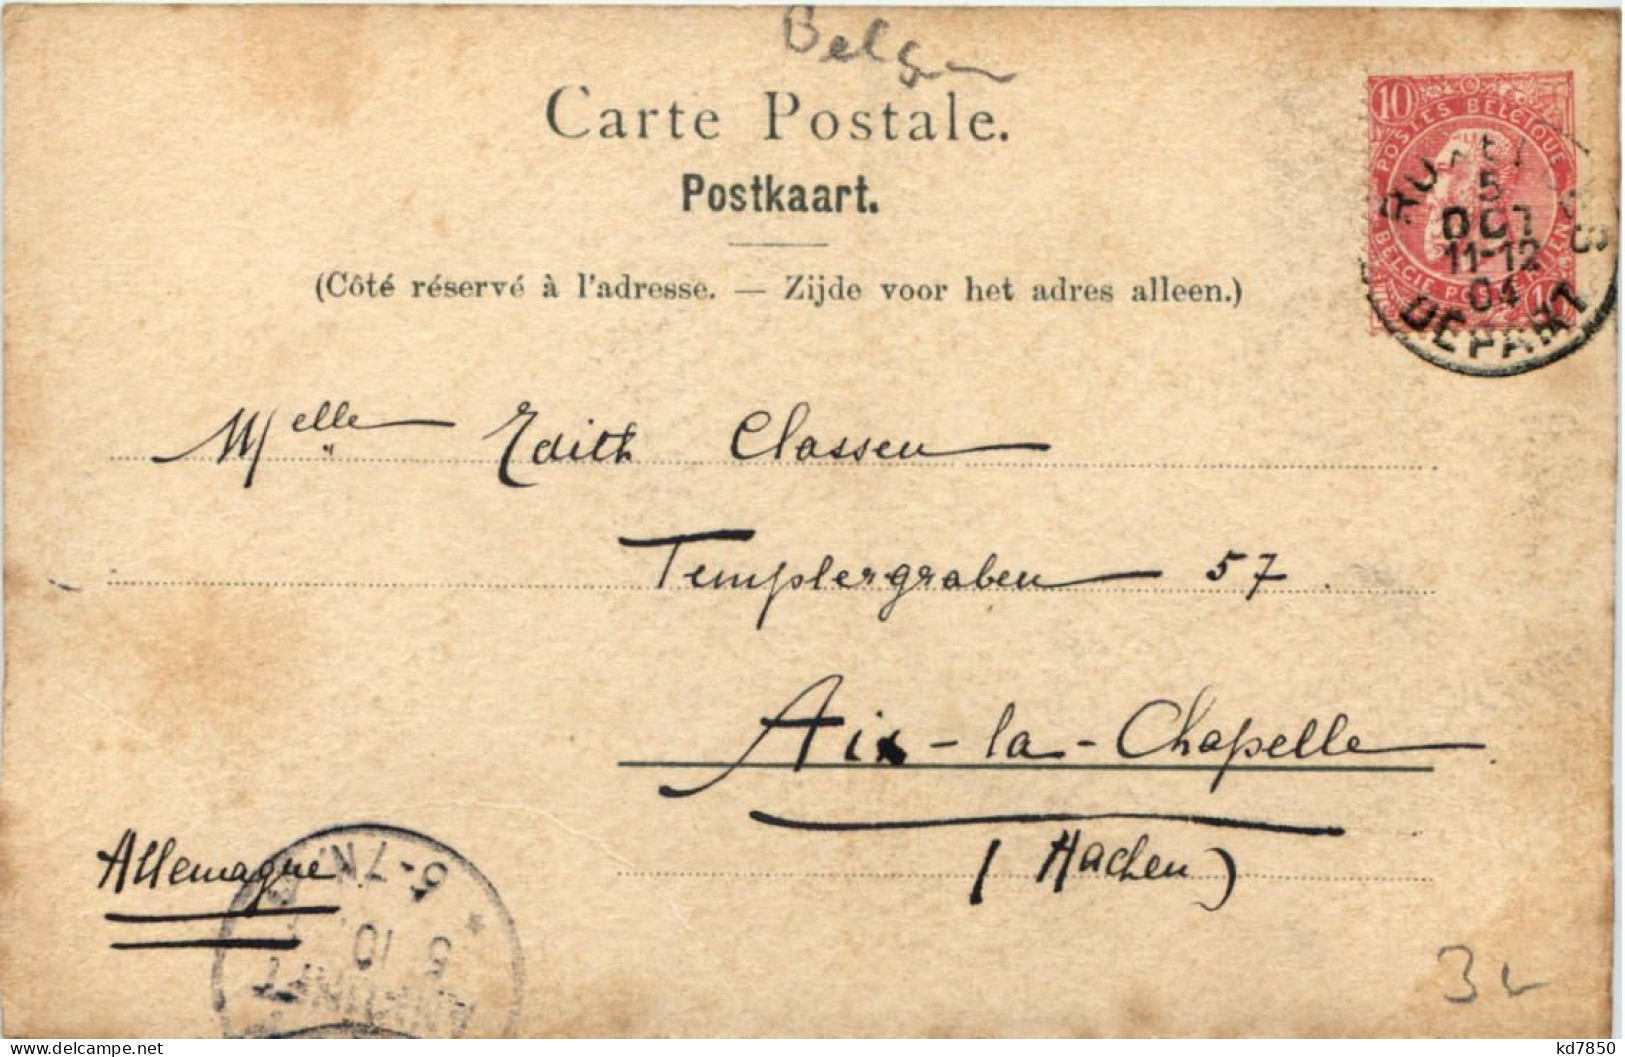 Belgien
Carte Postale.
Postkaart.
(Côté réservé à l'adresse. — Zijde voor het adres alleen.)
10 10
POSTES BELGIQUE
BELGIE
5
OCT
11-12
04
DEPART
Melle Edith Classen
Templergraben 57.
Aix-la-Chapelle.
(Aachen)
Allemagne
6-7N.
5 10
ANKUNFT
kd7850